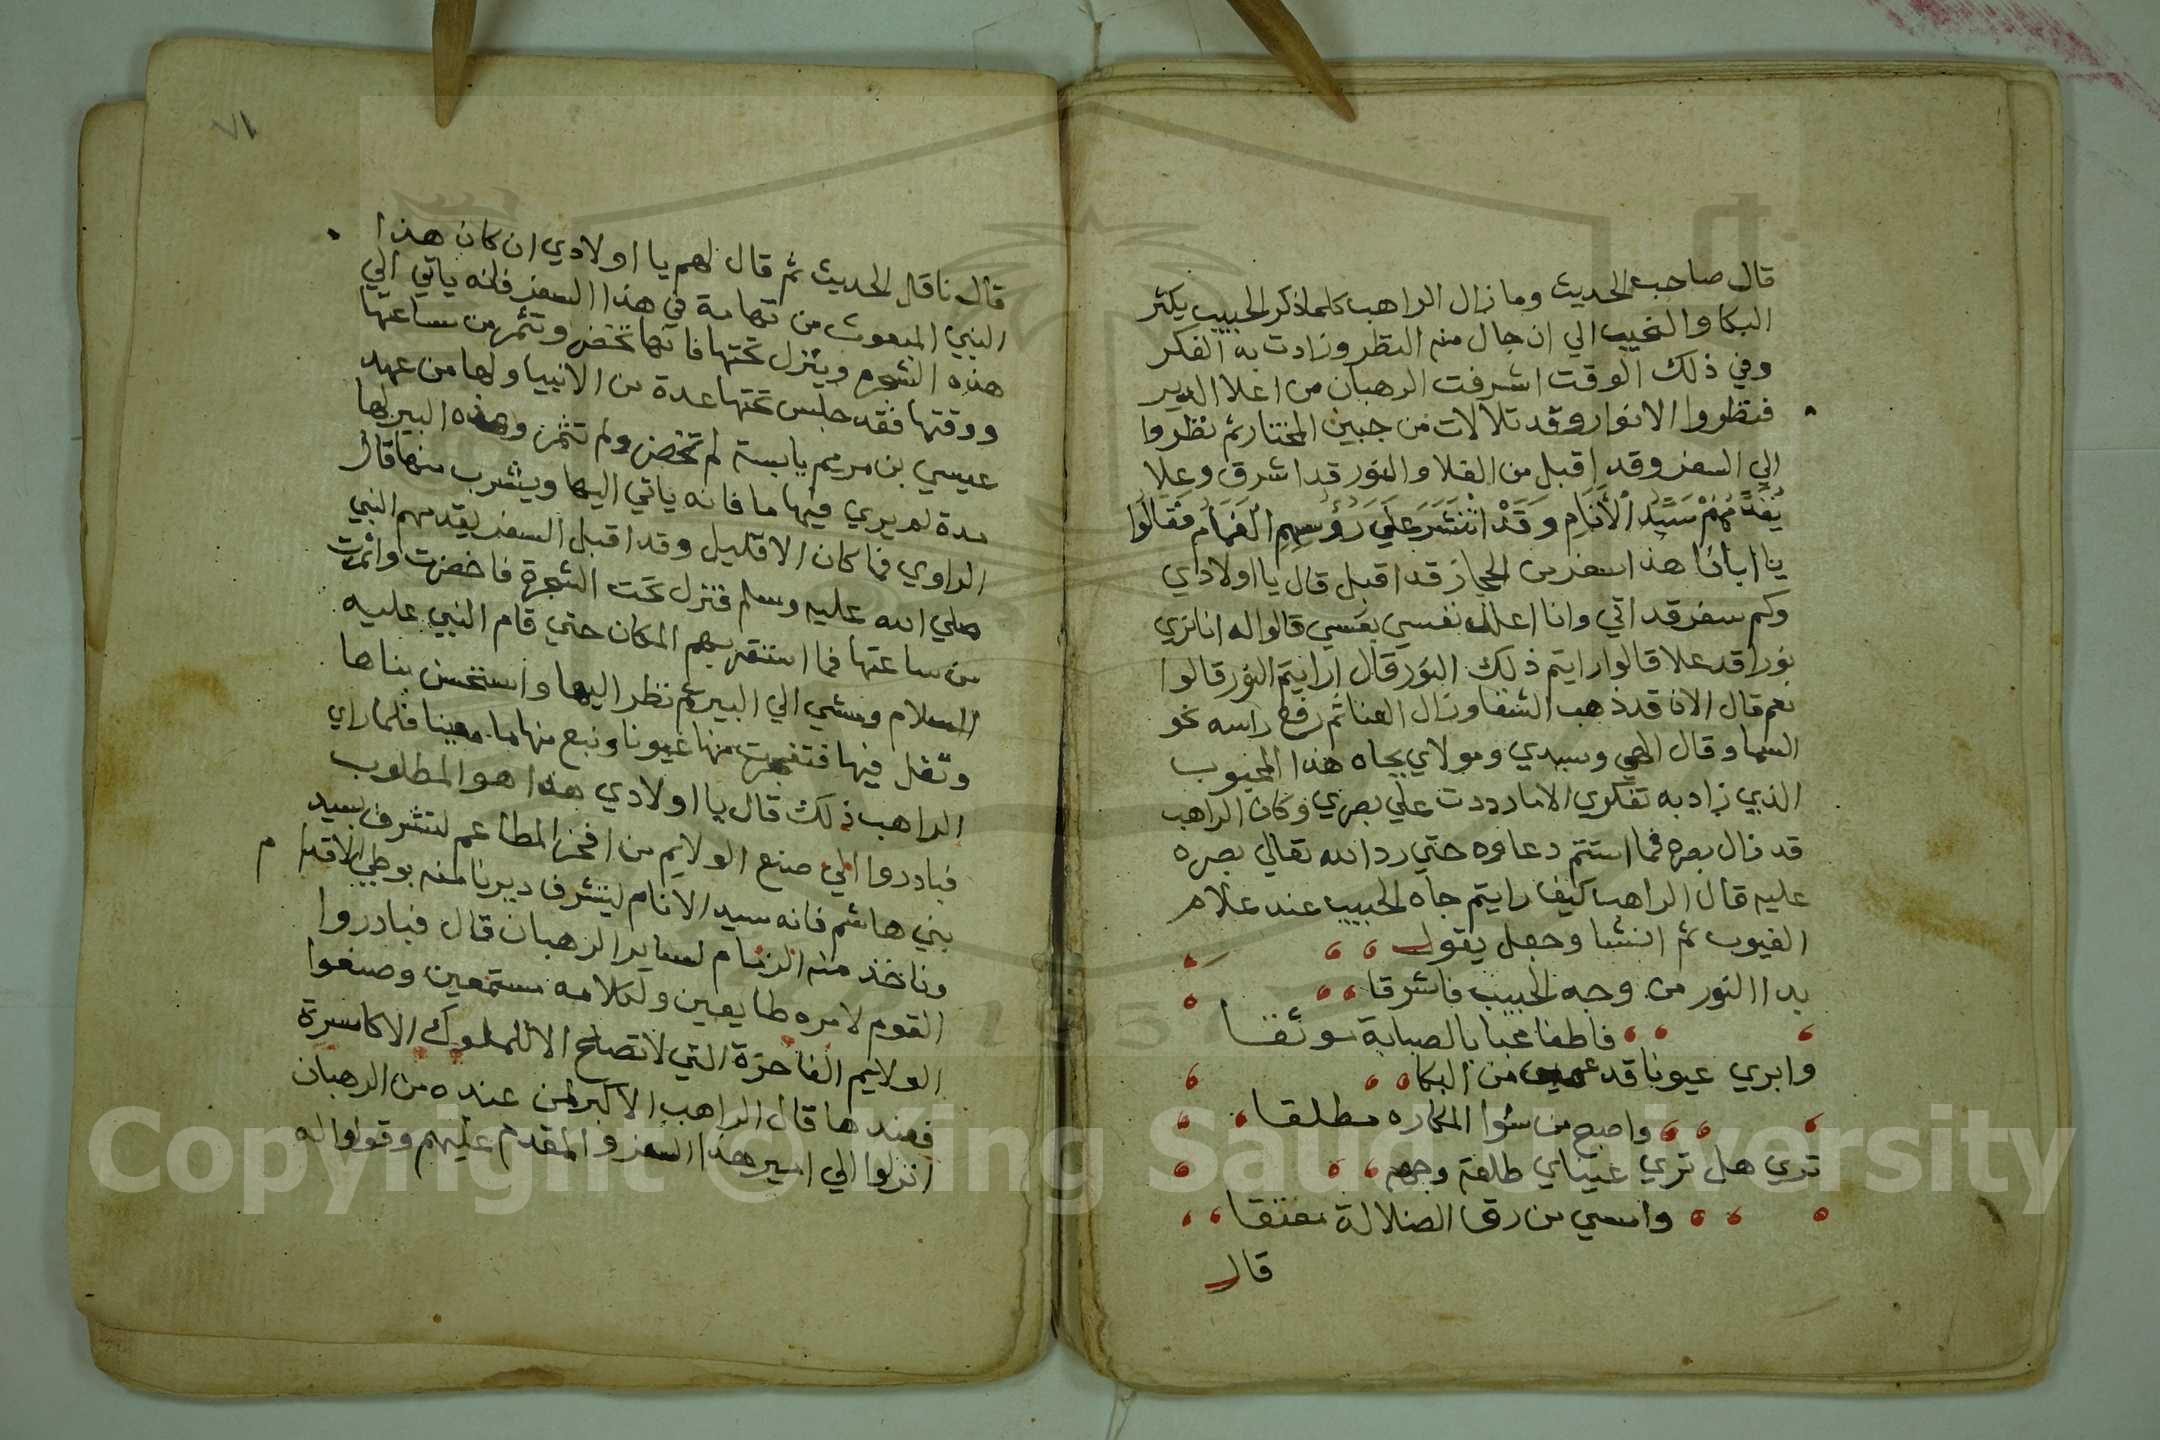 قال صاحب الحديث وما زال الراهب كلما ذكر الحبيب يكثر
البكا والنحيب الي ان حال منه النظر وزادت به الفكر
وفي ذلك الوقت اشرفت الرهبان من اعلا الدير
فنظروا الانوار وقد تلالات من جبين المختار ثم نظروا
الي السفر وقد اقبل من الفلا والنور قد اشرق وعلا
يَقْدُمُهُمْ سَيِّدُ الْأَنَامِ وَقَدْ انْتَشَرَ عَلَي رُؤُسِهِمِ الْغَمَامُ فَقَالُوا
يا ابانا هذا سفر من الحجاز قد اقبل قال يا اولادي
وكم سفر قد اتي وانا اعلل نفسي بنفسي قالوا له انا نري
نورا قد علا قالوا رايتم ذلك النور قال ارايتم النور قالوا
نعم قال الان قد ذهب الشقا وزال العنا ثم رفع راسه نحو
السما وقال الهي وسيدي ومولاي بجاه هذا المحبوب
الذي زاد به تفكري الا ما رددت علي بصري وكان الراهب
قد زال بصره فما استتم دعاوه حتي رد الله تعالي بصره
عليه قال الراهب كيف رايتم جاه الحبيب عند علام
الغيوب ثم انشا وجعل يقول
بدا النور من وجه الحبيب فاشرقا
فاطفا محبا بالصبابة موثقا
وابري عيونا قد عمين من البكا
واصبح من سوا المكاره مطلقا
تري هل تري عيناي طلعة وجهه
وامسي من رق الضلالة معتقا
قال
٧١
قال ناقل الحديث ثم قال لهم يا اولادي ان كان هذا
النبي المبعوث من تهامة في هذا السفر فانه ياتي الي
هذه الشجره وينزل تحتها فانها تخضر وتثمر من ساعتها
ووقتها فقد جلس تحتها عدة من الانبيا ولها من عهد
عيسي بن مريم يابسة لم تخضر ولم تثمر وهذه البير لها
مدة لم يري فيها ما فانه ياتي اليها ويشرب منها قال
الراوي فما كان الا قليل وقد اقبل السفر يقدمهم النبي
صلي الله عليه وسلم فنزل تحت الشجرة فاخضرت واثمرت
من ساعتها فما استقر بهم المكان حتي قام النبي عليه
السلام ومشي الي البير ثم نظر اليها واستحسن بناها
وتفل فيها فتفجرت منها عيونا ونبع منها ما معينا فلما راي
الراهب ذلك قال يا اولادي هذا هو المطلوب
فبادروا الي صنع الولايم من افخر المطاعم لنتشرف بسيد
بني هاشم فانه سيد الانام ليتشرف ديرنا منه بوطي الاقدام
وناخذ منه الزمام لساير الرهبان قال فبادروا
القوم لامره طايعين ولكلامه مستمعين وصنعوا
الولايم الفاخرة التي لا تصلح الا للملوك الاكاسرة
فعندها قال الراهب الاكبر لمن عنده من الرهبان
انزلوا الي امير هذا السفر والمقدم عليهم وقولوا له
Copyright © King Saud University
1957